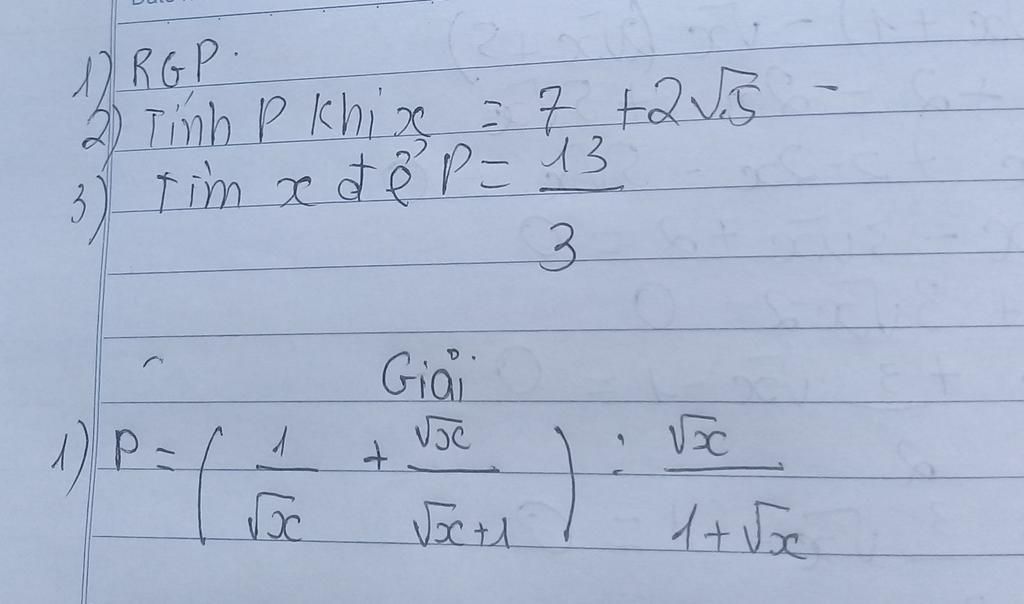 1) RGP.
2) Tính P khi x = 7 + 2√5
3) Tìm x để P = 13/3
Giải
1) P = (1/√x + √x/(√x+1)) : √x/(1+√x)